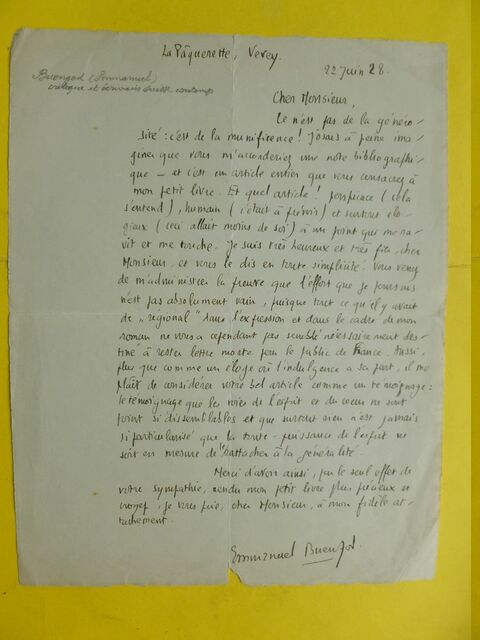 La Pâquerette, Vevey.
22 Juin 28.
Buenzod (Emmanuel)
critique et écrivain suisse contemp.
Cher Monsieur,
Ce n'est pas de la généro-
sité : c'est de la munificence ! J'osais à peine ima-
giner que vous m'accorderiez une note bibliographi-
que — et c'est un article entier que vous consacrez à
mon petit livre. Et quel article ! perspicace (cela
s'entend), humain (c'était à prévoir) et surtout élo-
gieux (ceci allait moins de soi) à un point que me ra-
vit et me touche. Je suis très heureux et très fier, cher
Monsieur, et vous le dis en toute simplicité. Vous venez
de m'administrer la preuve que l'effort que je poursuis
n'est pas absolument vain, puisque tout ce qu'il y avait
de "régional" dans l'expression et dans le cadre de mon
roman ne vous a cependant pas semblé nécessairement des-
tiné à rester lettre morte pour le public de France. Aussi,
plus que comme un éloge où l'indulgence a sa part, il me
plaît de considérer votre bel article comme un témoignage :
le témoignage que les voies de l'esprit et du cœur ne sont
point si dissemblables et que surtout rien n'est jamais
si particularisé que la toute-puissance de l'esprit ne
soit en mesure de l'rattacher à la généralité.
Merci d'avoir ainsi, par le seul effet de
votre sympathie, rendu mon petit livre plus précieux et
croyez, je vous prie, cher Monsieur, à mon fidèle at-
tachement.
Emmanuel Buenzod.